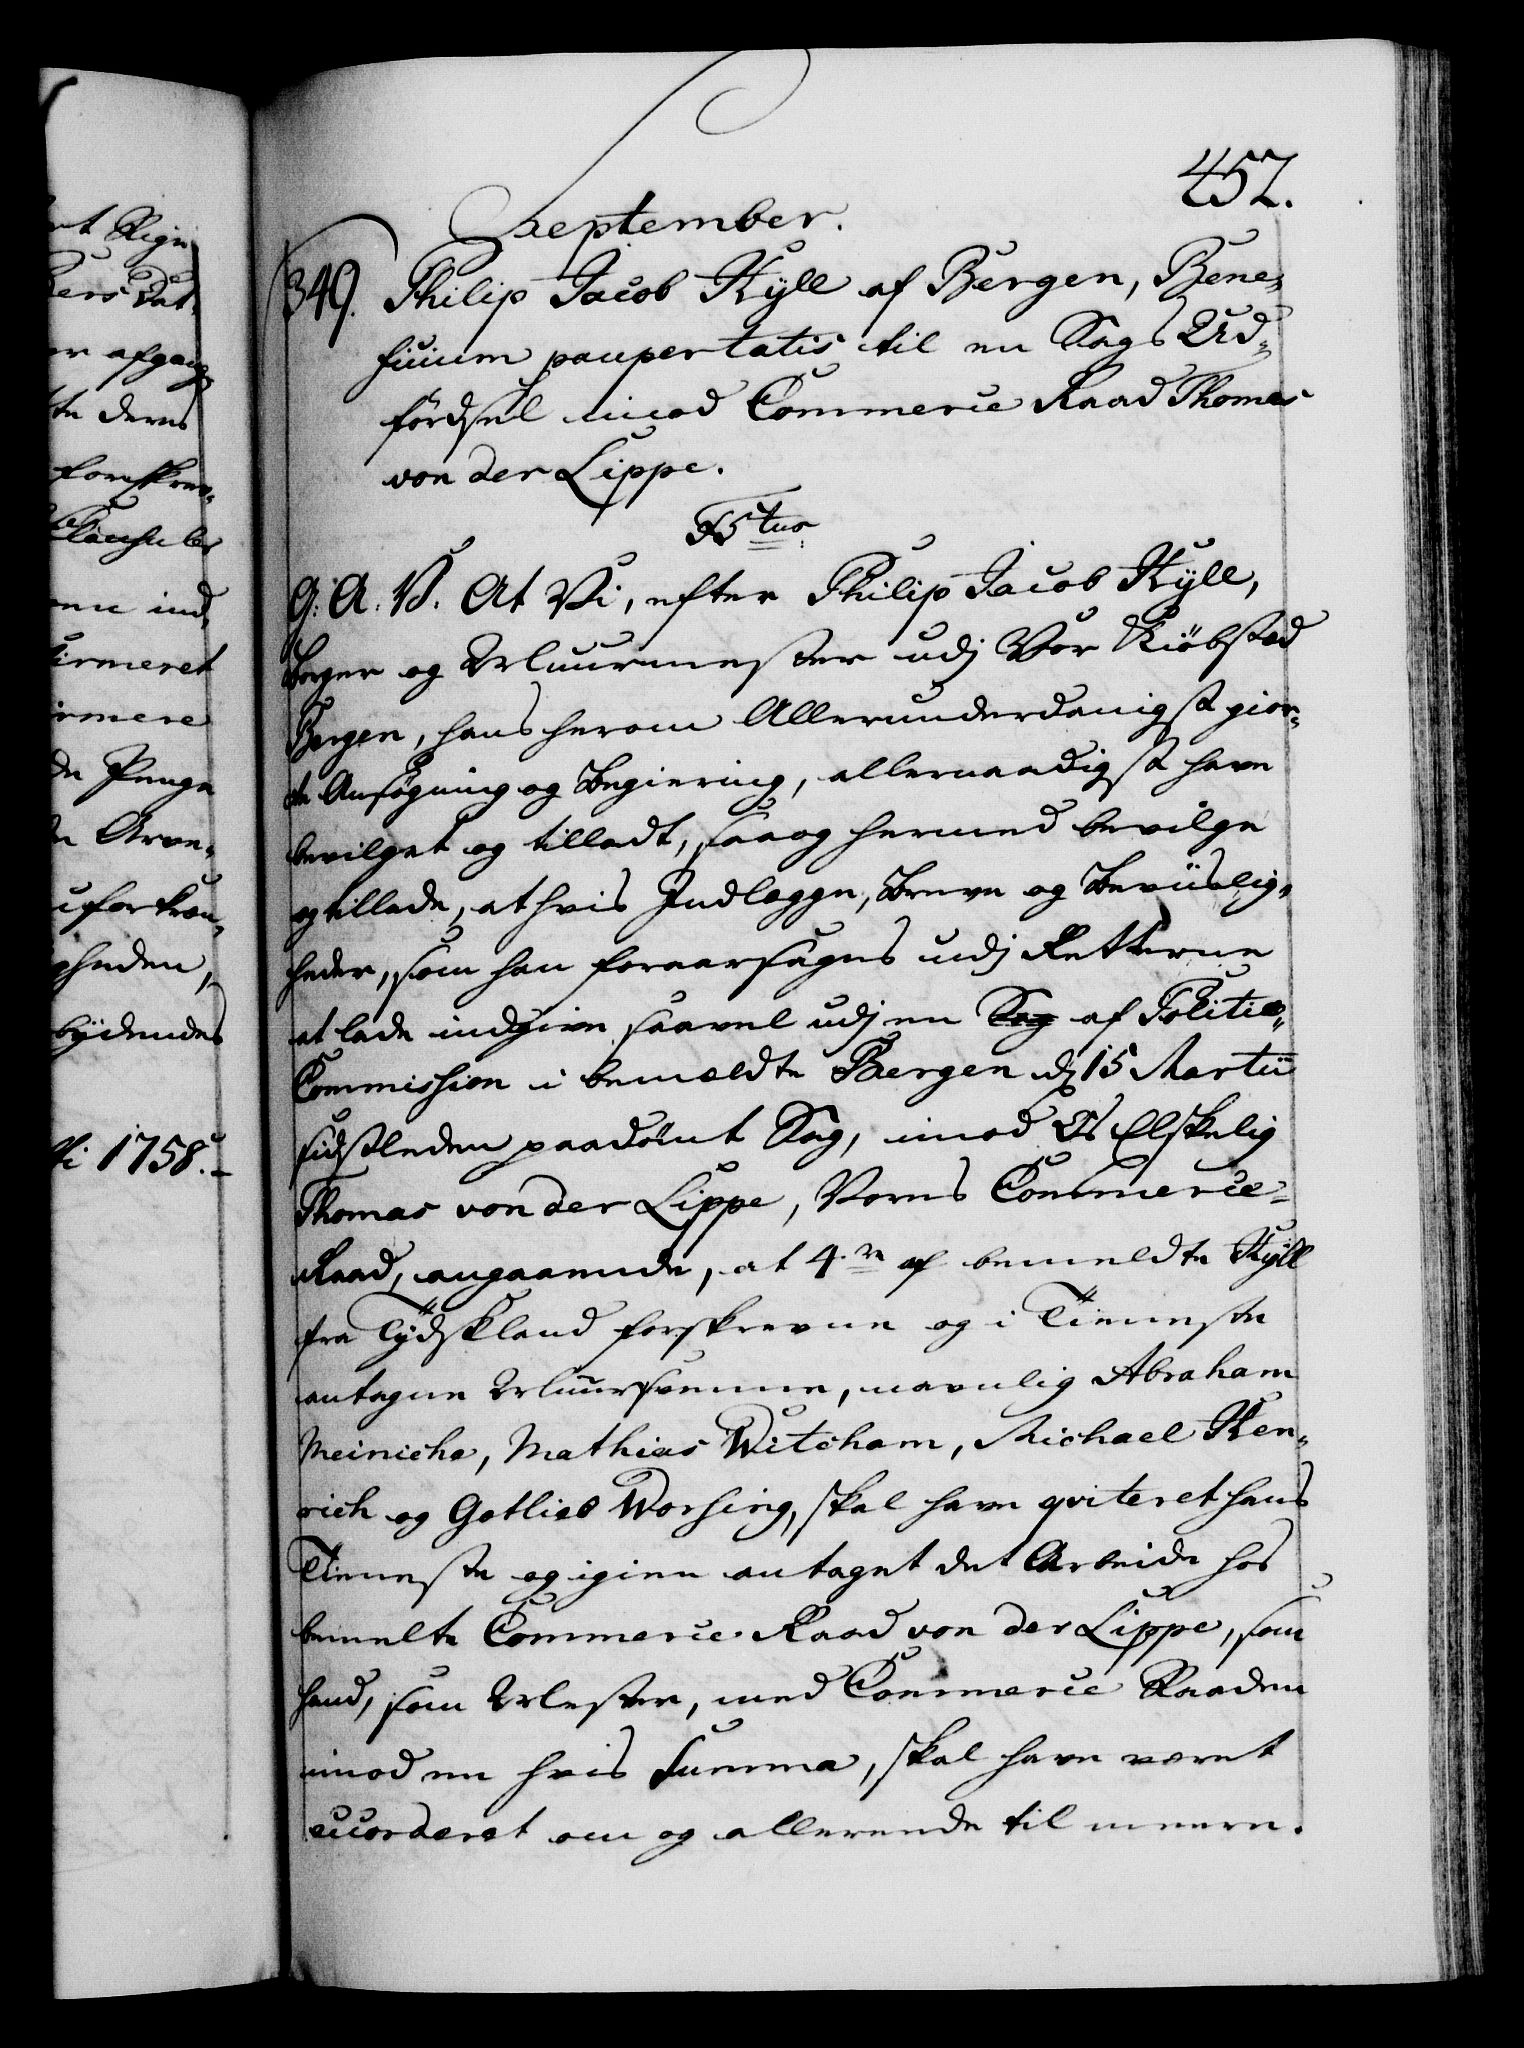 457.
September.
349. Philip Jacob Kyll af Bergen, Bene-
ficium paupertatis til en Sags Ud-
fördsel imod Commerce Raad Thomas
von der Lippe.
F5tus
G: A. V. At Vi, efter Philip Jacob Kyll,
Borger og Uhrmester udj Vor Kiöbsted
Bergen, hans herom Allerunderdanigst gior-
te Ansøgning og Begiering, allernaadigst have
bevilget og tilladt, saa og hermed bevilge
og tillade, at hvis Indlegge, Breve og Beviislig-
heder, som han foraarsages udj Retterne
at lade indgive saavel udj en Sag af Politie-
Commission i bemeldte Bergen dj 15 Martii
sidstleden paadömt Sag, imod Os Elskelig
Thomas von der Lippe, Vores Commerce-
Raad, angaaende, at 4re af bemeldte Kyll
fra Tydskland forskrevne og i Tieneste
antagne svenne, navnlig Abraham
Meiniche, Mathias Witcham, Michael Hen-
rich og Gotlieb Worsing, skal have qviteret hans
Tieneste og igien antaget det Arbeide hos
bemelte Commerce Raad von der Lippe, som
hand, som, med Commerce Raaden
imod en hvis Summa, skal have været
accorderet om og allerede til meere.
ti 1758.